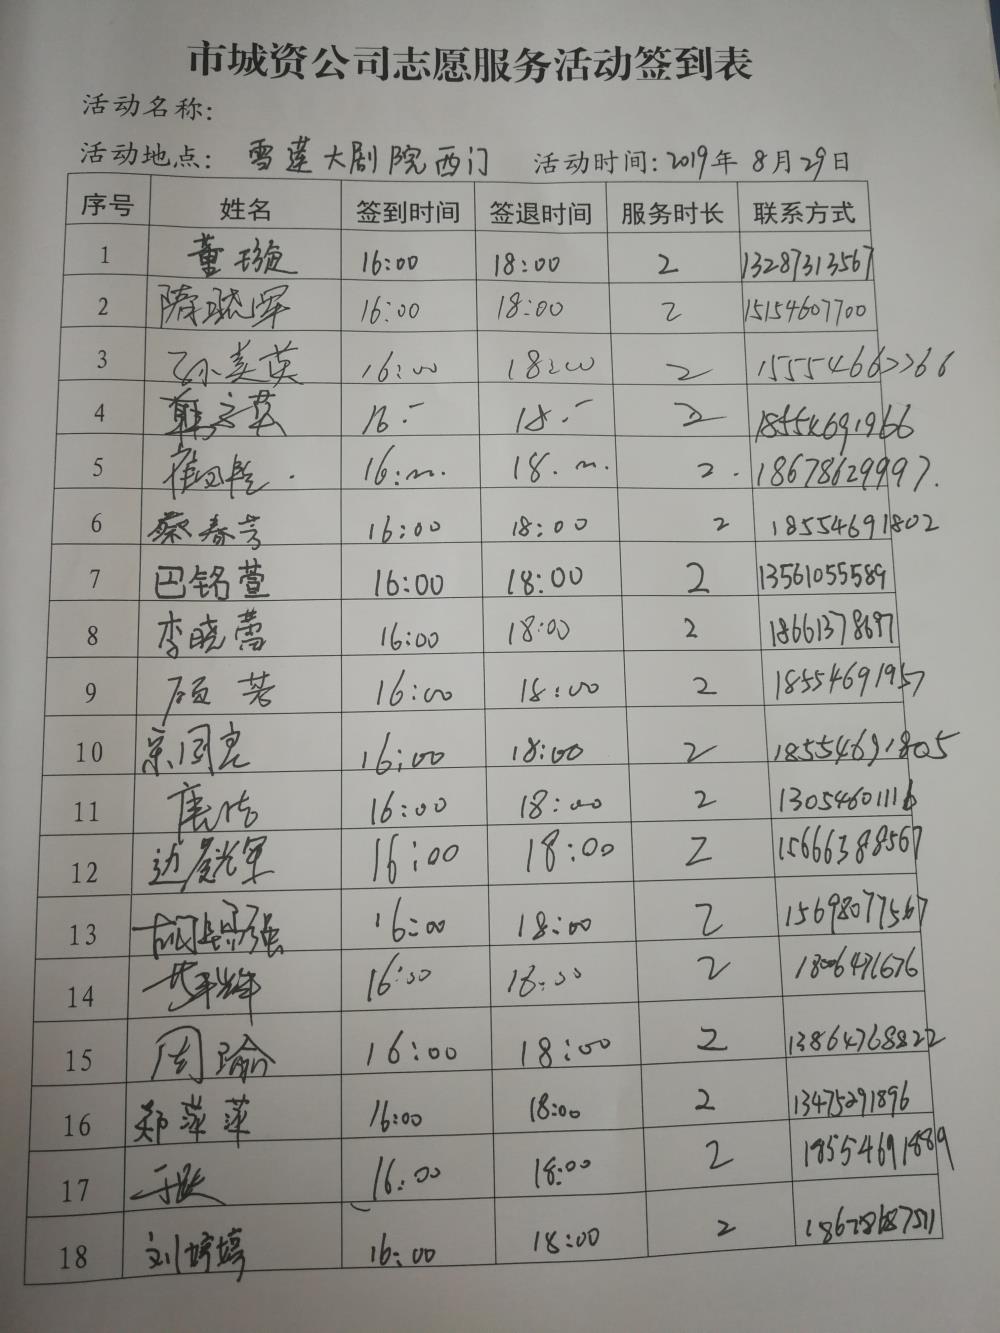 市城资公司志愿服务活动签到表
活动名称:
活动地点: 雪莲大剧院西门 活动时间: 2019年 8月 29日
序号 姓名 签到时间 签退时间 服务时长 联系方式
1 董璇 16:00 18:00 2 13287313567
2 隋晓军 16:00 18:00 2 15154607700
3 孙美英 16:00 18:00 2
4 16.- 18.- 2 18554691966
5 16:00. 18.00. 2. 18678629997.
6 蔡春芳 16:00 18:00 2 18554691802
7 巴铭萱 16:00 18:00 2 13561055589
8 李晓蕾 16:00 18:00 2 18661378697
9 顾芸 16:00 18:00 2 18554691957
10 宗同亮 16:00 18:00 2 18554691805
11 唐浩 16:00 18:00 2 13054601116
12 16:00 18:00 2 15666388567
13 16:00 18:00 2 15698077567
14 16:00 18:00 2
15 周瑜 16:00 18:00 2 13864768822
16 郑萍萍 16:00 18:00 2 13475291896
17 于跃 16:00 18:00 2 18554691889
18 刘婷婷 16:00 18:00 2 18678687511